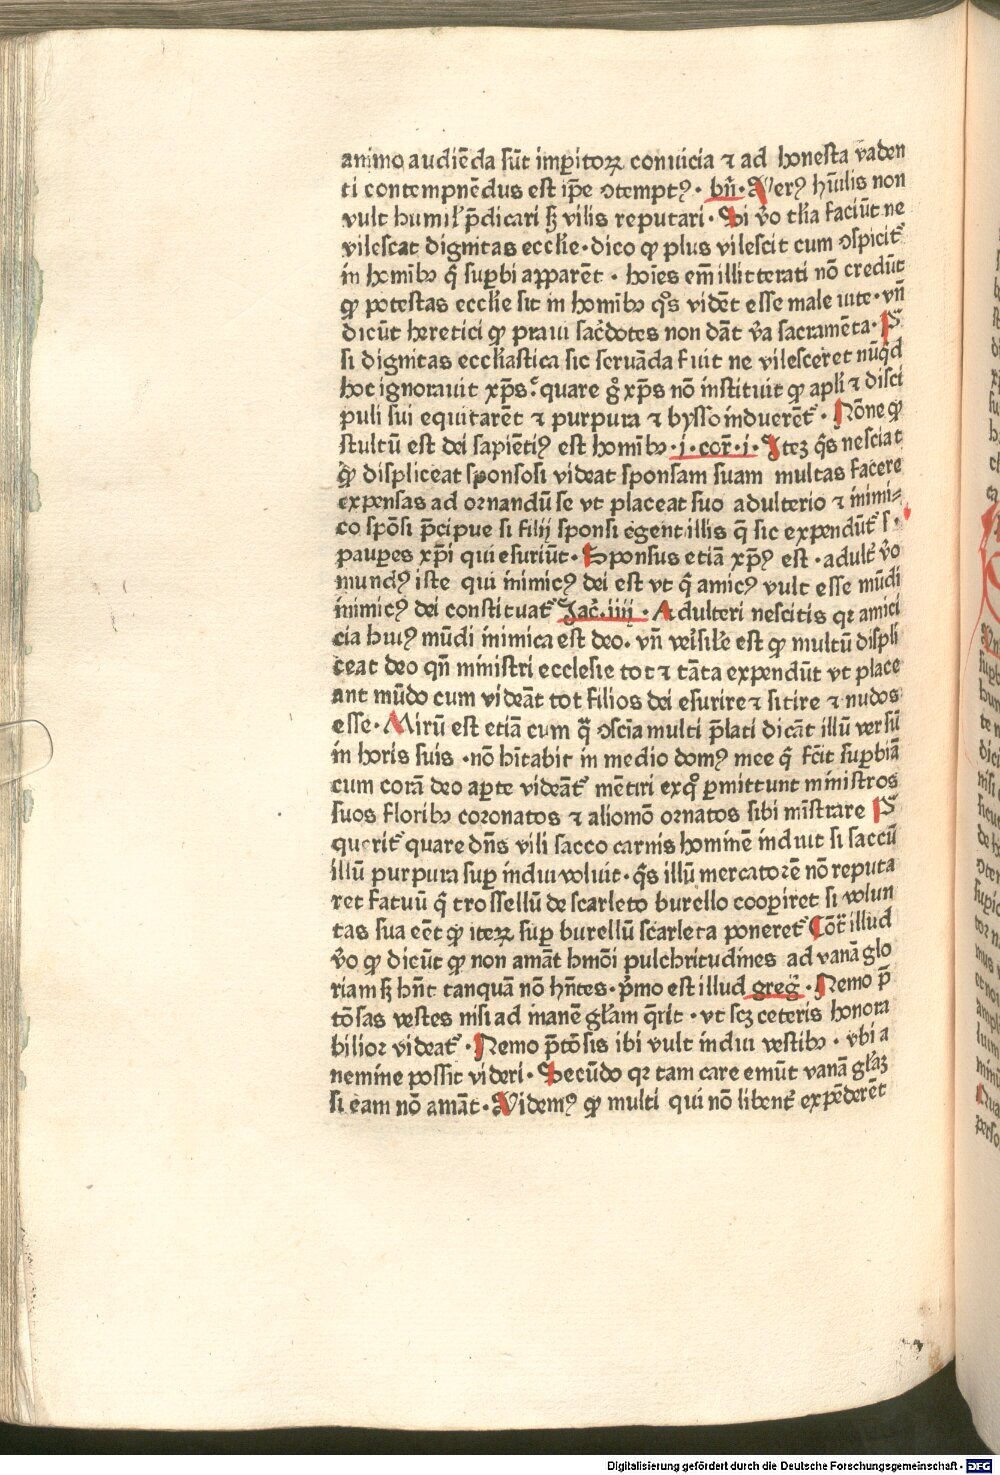 animo audiēda sūt imꝑitoꝝ conuicia ⁊ ad honesta vaden
ti contempnēdus est ip̄e ↄtemptꝰ· bn̄·Verꝰ hūilis non
vult humil̵ p̄dicari sꝫ vilis reputari·Si v̄o tl̵ia faciūt ne
vilescat dignitas eccl̵ie·dico ꝙ plus vilescit cum ↄspicit᷑
in homībꝫ q̄ suꝑbi apparēt· hoīes em̄ illitterati nō credūt
ꝙ potestas eccl̵ie sit in homībꝫ q̊s vidēt esse male uite·vn̄
dicūt heretici ꝙ praui sac̄dotes non dāt v̄a sacramēta·S
si dignitas eccl̵iastica sic seruāda fuit ne vilesceret nūq̇d
hoc ignorauit xp̄s: quare g̊ xp̄s nō instituit ꝙ apl̵i ⁊ disci
puli sui equitarēt ⁊ purpura ⁊ bysso induerēt᷑·Nōne ꝙ
stultū est dei sapiētiꝰ est homībꝫ·i·cor̄·i·Iteꝫ q̇s nesciat
ꝙ displiceat sponsosi videat sponsam suam multas facere
expensas ad ornandū se vt placeat suo adulterio ⁊ inimi⸗
co spōsi p̄cipue si filij sponsi egent illis q̄ sic expendūt᷑ s·
pauꝑes xp̄i qui esuriūt·Sponsus etiā xp̄ꝰ est·adult̄ v̄o
mundꝰ iste qui inimicꝰ dei est vt q̇ amicꝰ vult esse mūdi
inimicꝰ dei constituat᷑ Jac̄·iiij·Adulteri nescitis qꝛ amici
cia huiꝰ mūdi inimica est deo·vn̄ veꝛ̄sil̵e est ꝙ multū displi
ceat deo qn̄ ministri ecclesie tot ⁊ tāta expendūt vt place
ant mūdo cum videāt tot filios dei esurire ⁊ sitire ⁊ nudos
esse·Mirū est etiā cum q̈ ↄsciā multi p̄lati dicāt illū versū
in horis suis·nō hītabit in medio domꝰ mee q̇ fc̄it suꝑbiā
cum corā deo aꝑte videāt᷑ mētiri exq̊ ꝑmittunt ministros
suos floribꝫ coronatos ⁊ aliomō ornatos sibi mīstrare S
querit᷑ quare dn̄s vili sacco carnis hominē induit si saccū
illū purpura suꝑ indui voluit·q̇s illū mercatorē nō reputa
ret fatuū q̇ trossellū de scarleto burello cooꝑiret si volun
tas sua eēt ꝙ iteꝝ suꝑ burellū scarleta poneret᷑ Cōt̄ illud
v̄o ꝙ dicūt ꝙ non amāt hmōi pulchritudines ad vanā glo
riam sꝫ hn̄t tanquā nō hn̄tes·p̊mo est illud greg̊·Nemo p̄
tōsas vestes nisi ad inanē gl̵am q̄rit·vt scꝫ ceteris honora
bilior videat᷑·Nemo p̄tōsis ibi vult indui vestibꝫ·vbi a
nemine possit videri·Secūdo qꝛ tam care emūt vanā gl̵aꝫ
si eam nō amāt·Videmꝰ ꝙ multi qui nō libent᷑ expēderēt
Digitalisierung gefördert durch die Deutsche Forschungsgemeinschaft · DFG